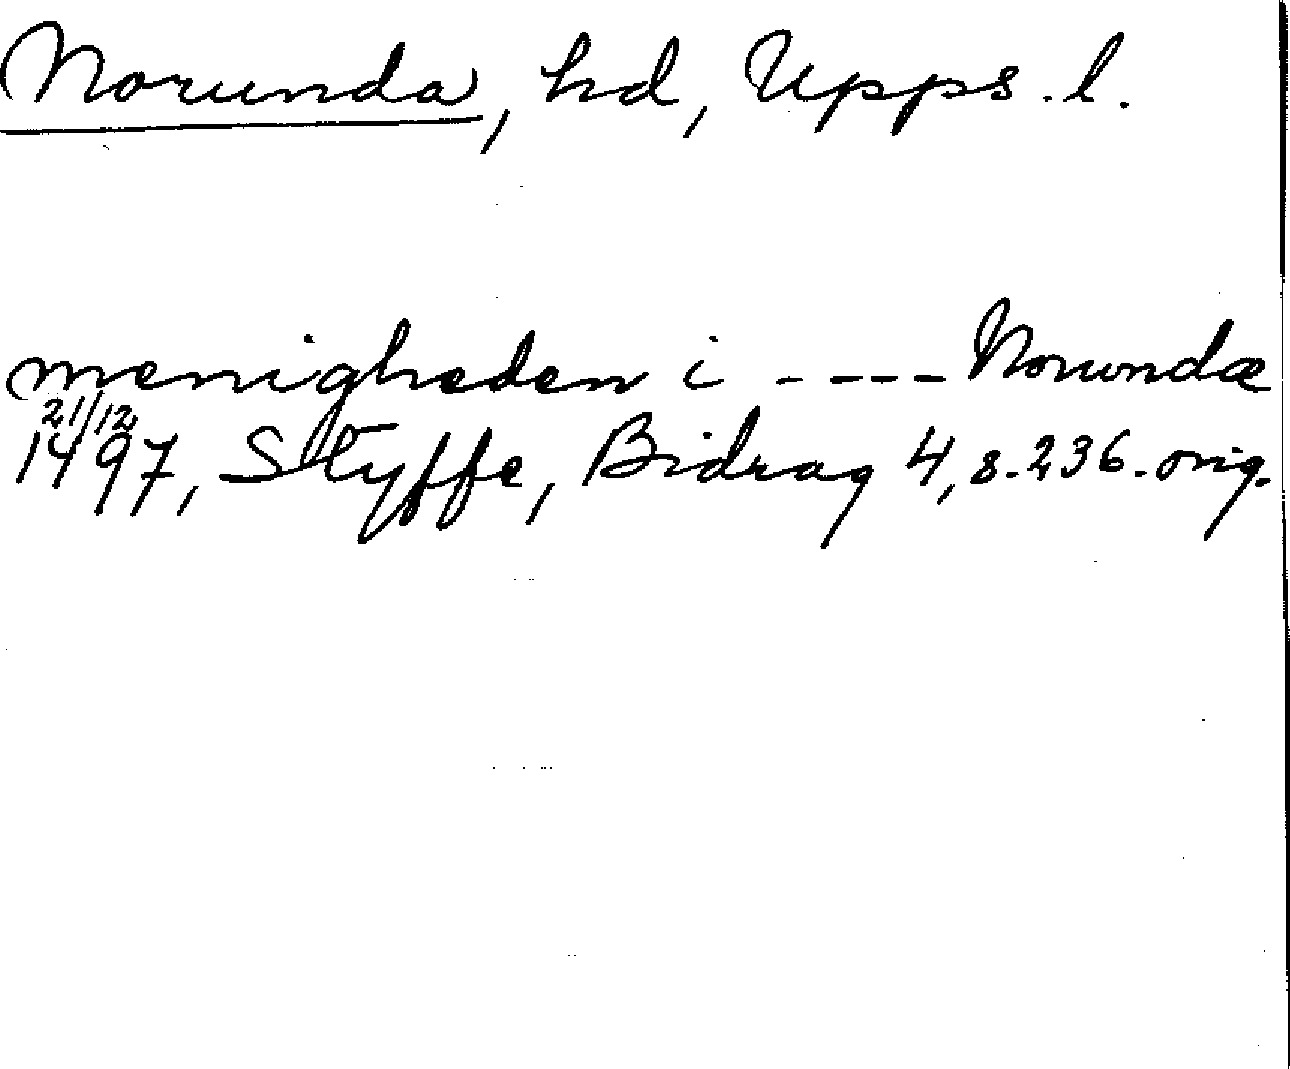 Norunda, hd, Upps. l.
menigheden i - - - - Norundæ
21/12
1497, Styffe, Bidrag 4, s. 236. orig.